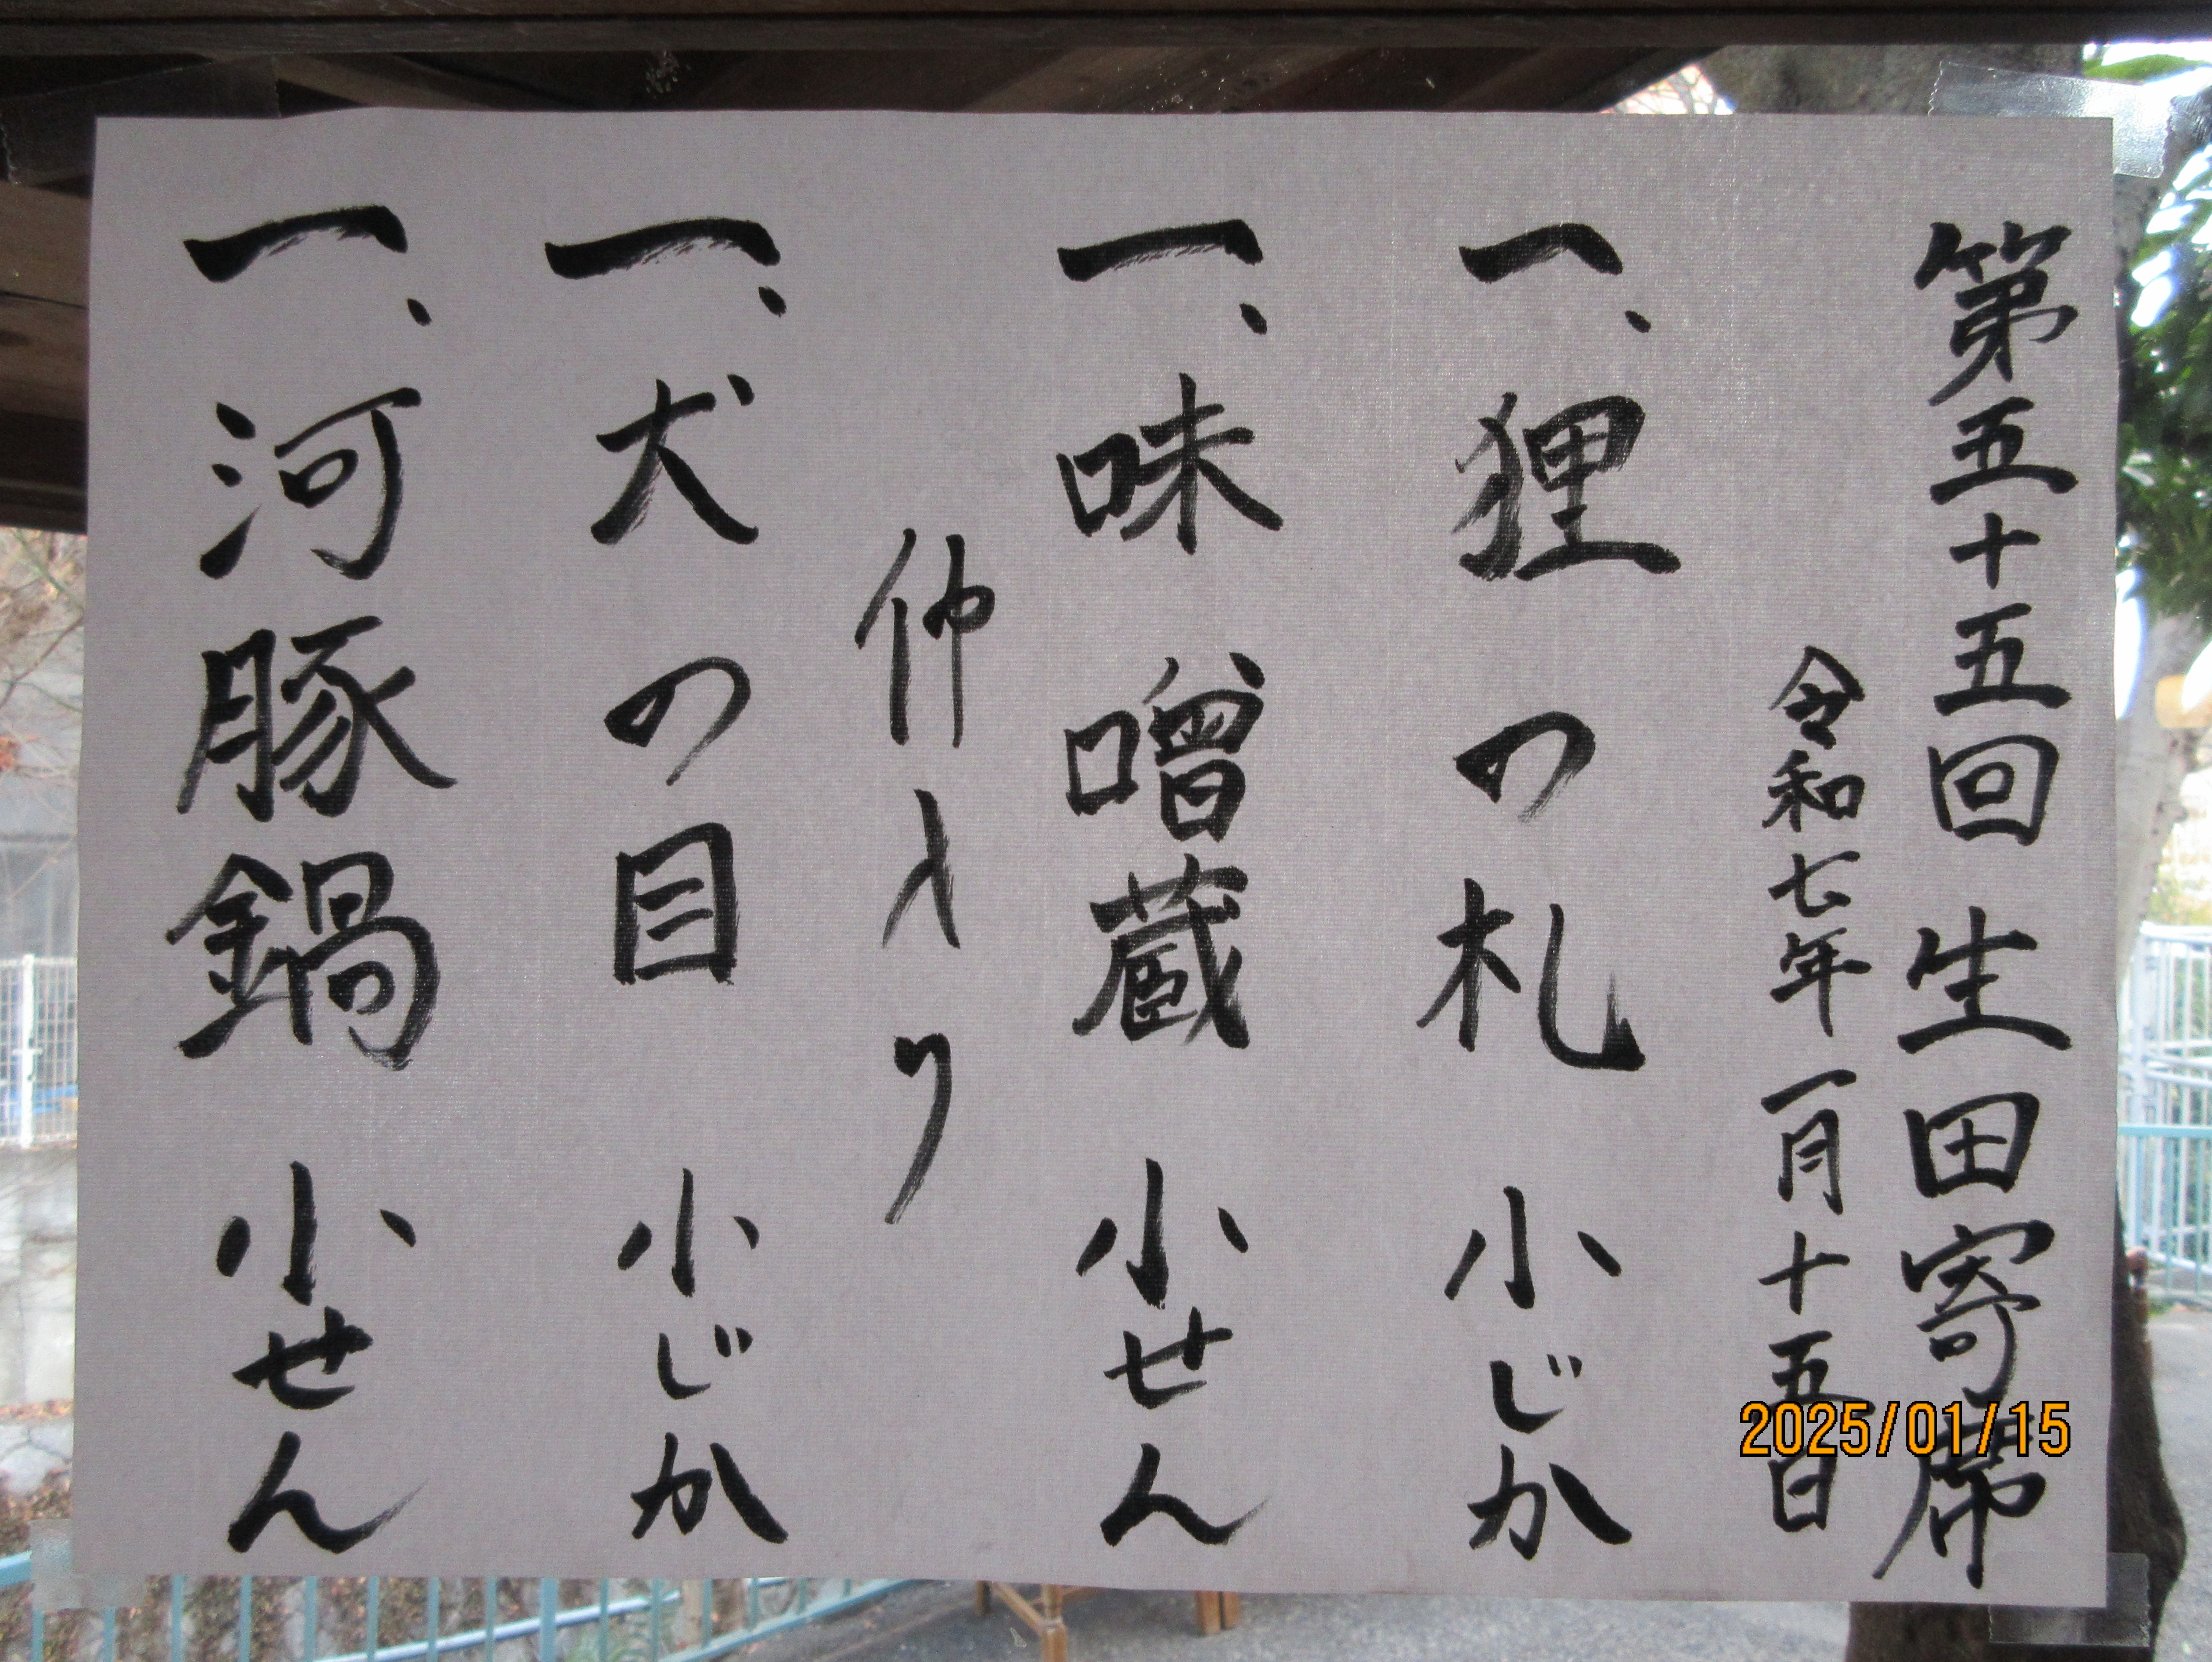 第五十五回 生田寄席
令和七年 一月十五日
一、狸の札 小じか
一、味噌蔵 小せん
仲入り
一、犬の目 小じか
一、河豚鍋 小せん
2025/01/15